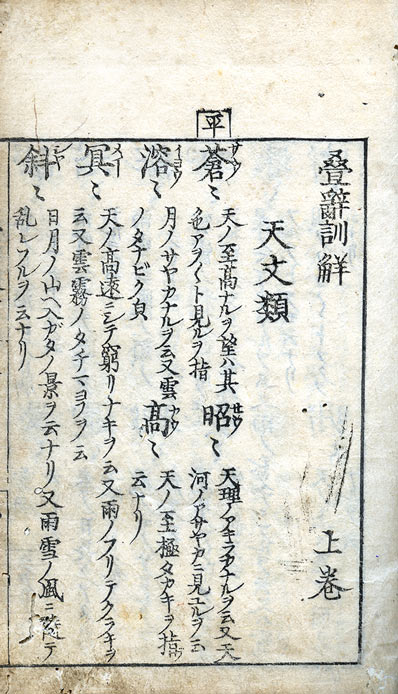 平
疊辭訓解 上巻
天文類
蒼〻 サウ 天ノ至高ナルヲ望ハ其
色アヲ〱ト見ルヲ指
昭〻 セウ 天理ノアキラカナルヲ云又天
河ノアサヤカニ見ユルヲ云
溶〻 イヨウ 月ノサヤカナルヲ云又雲
ノタナビク皃
高〻 カウ 天ノ至極タカキヲ指
云ナリ
冥〻 メイ 天ノ高遠ニシテ窮リナキヲ云又雨ノフリテクラキヲ
云又雲霧ノタチマヨフヲ云
斜〻 シヤ 日月ノ山ヘ入ガタノ景ヲ云ナリ又雨雪ノ風ニ随テ
乱レフルヲ云ナリ